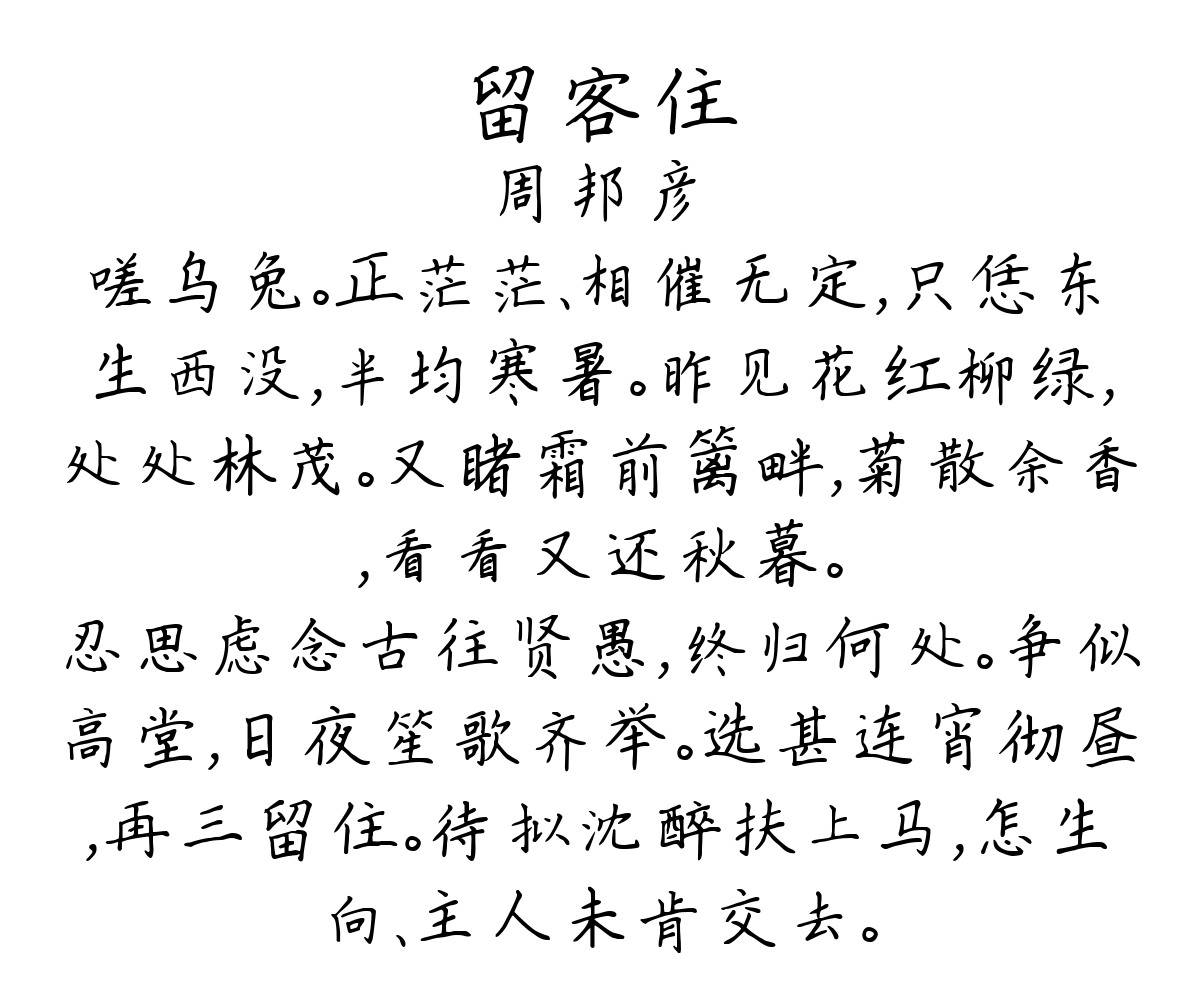 留客住
周邦彦
嗟乌兔。正茫茫、相催无定,只恁东
生西没,半均寒暑。昨见花红柳绿,
处处林茂。又睹霜前篱畔,菊散余香
,看看又还秋暮。
忍思虑念古往贤愚,终归何处。争似
高堂,日夜笙歌齐举。选甚连宵彻昼
,再三留住。待拟沈醉扶上马,怎生
向、主人未肯交去。